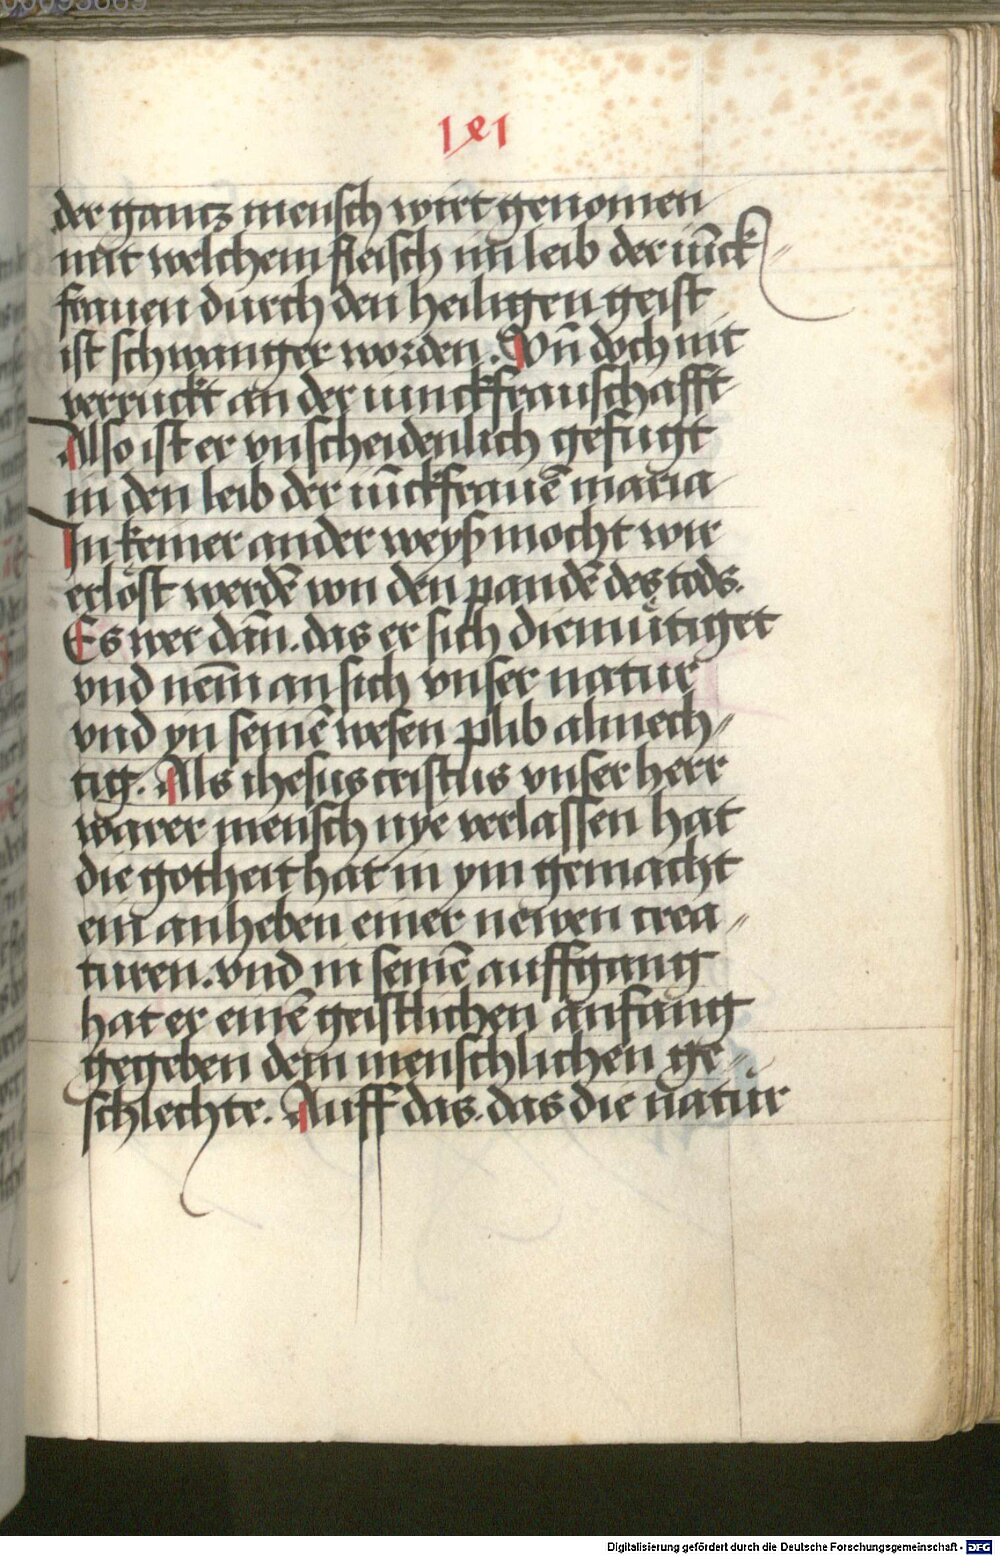 der gantz mensch wirt genomen
mit welchem fleisch im leib der iu̅ck
frauen durch den heiligen geist
ist schwanger worden. Vn̅ doch nit
verruckt an der iunckfrauschafft
Also ist er vnscheidenlich gefugt
in den leib der iu̅ckfraue̅ maria
In keiner ander weyß mocht wir
erlöst werde̅ von den pande̅ des tods.
Es wer dan̅. das er sich diemütiget
vnd nem̅ an sich vnser natur
vnd yn seine̅ wesen plib almech-
tig. Als ihesus cristus vnser herr
warer mensch nye verlassen hat
die gotheit hat in ym gemacht
ein anheben einer newen crea-
turen. vnd in seine̅ auffgang
hat er eine̅ geistlichen anfang
gegeben dem menschlichen ge-
schlechte. Auff das. das die natur
Digitalisierung gefördert durch die Deutsche Forschungsgemeinschaft - DFG